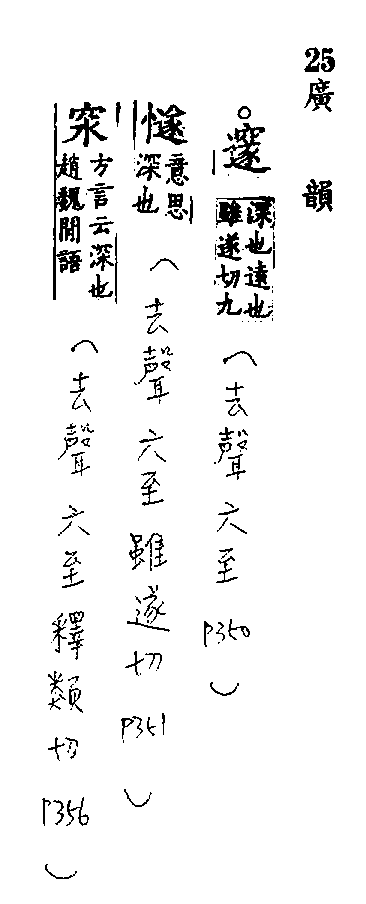 25 廣韻
○邃 深也遠也
雖遂切九
(去聲 六至 P350)
意思
深也
(去聲 六至 雖遂切 P351)
方言云深也
趙魏間語
(去聲 六至 釋類切 P356)